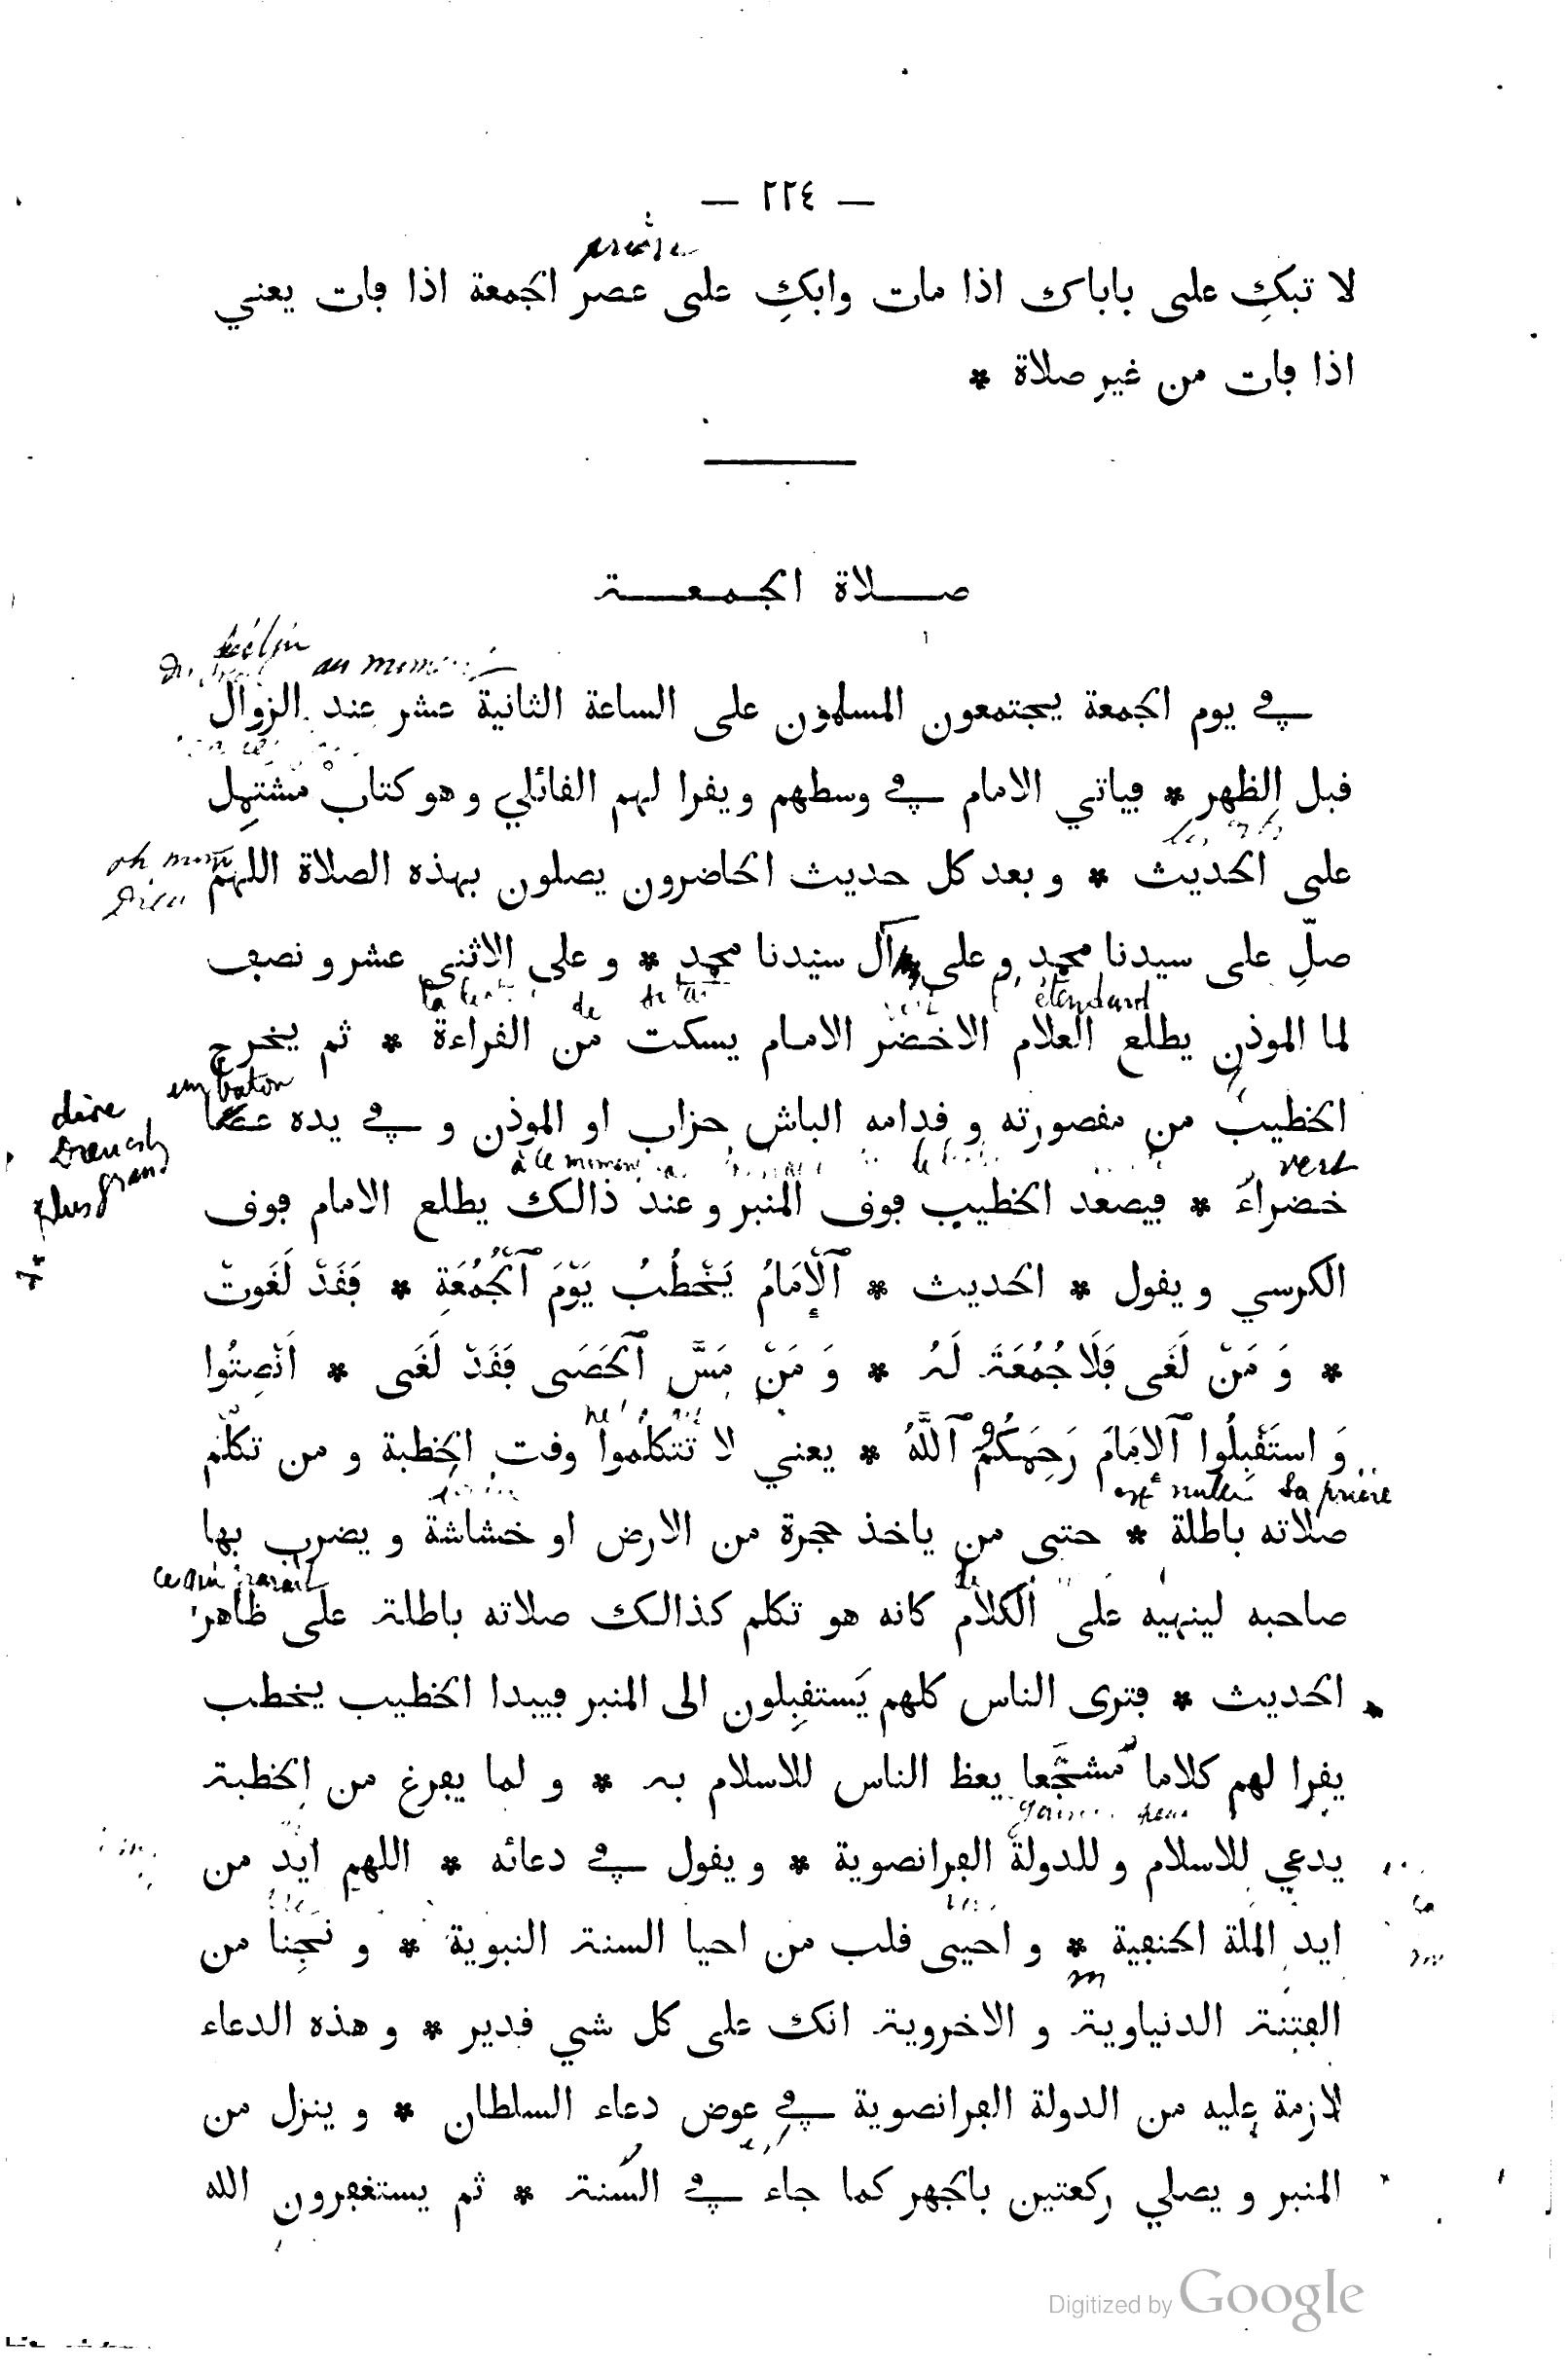 — ٢٢٤ —
لا تبكِ على باباك اذا مات وابكِ على عصر الجمعة اذا فات يعني
اذا فات من غير صلاة *
صلاة الجمعة
au moment
في يوم الجمعة يجتمعون المسلمون على الساعة الثانية عشر عند الزوال
قبل الظهر * فياتي الامام في وسطهم ويقرا لهم القائلي وهو كتاب مشتمِل
على الحديث * وبعد كل حديث الحاضرون يصلون بهذه الصلاة اللهمّ
oh mon
Dieu
صلِّ على سيدنا محمد وعلى آل سيدنا محمد * وعلى الاثنى عشر ونصف
étendard
de
لما الموذن يطلع العلام الاخضر الامام يسكت من القراءة * ثم يخرج
un baton
الخطيب من مقصورته وقدامه الباش حزاب او الموذن وفي يده عصا
dire
plus grand
à ce moment
vert
خضراء * فيصعد الخطيب فوق المنبر وعند ذالك يطلع الامام فوق
الكرسي ويقول * الحديث * ٱلْإِمَامُ يَخْطُبُ يَوْمَ ٱلْجُمُعَةِ * فَقَدْ لَغَوتْ
* وَ مَنْ لَغَى فَلَا جُمُعَةَ لَهُ * وَ مَنْ مَسَّ ٱلْحَصَى فَقَدْ لَغَى * اَنْصِتُوا
وَ استَقْبِلُوا ٱلامَامَ رَحِمَكُمُ ٱللَّهُ * يعني لا تتكلموا وقت الخطبة ومن تكلّم
est nulle sa prière
صلاته باطلة * حتى من ياخذ حجرة من الارض او خشاشة ويضرب بها
ce qui parait
de
صاحبه لينهيه على الكلام كانه هو تكلم كذالك صلاته باطلة على ظاهر
الحديث * فترى الناس كلهم يَستقبِلون الى المنبر فيبدا الخطيب يخطب
يقرا لهم كلاما مشجّعا يعظ الناس للاسلام به * ولما يفرغ من الخطبة
يدعي للاسلام وللدولة الفرانصوية * ويقول في دعائه * اللهم ايد من
ايد الملة الحنفية * واحيى قلب من احيا السنة النبوية * ونجِنا من
الفتنة الدنياوية والاخروية انك على كل شي قدير * وهذه الدعاء
لازمة عليه من الدولة الفرانصوية في عوض دعاء السلطان * وينزل من
المنبر ويصلي ركعتين بالجهر كما جاء في السّنة * ثم يستغفرون الله
Digitized by Google